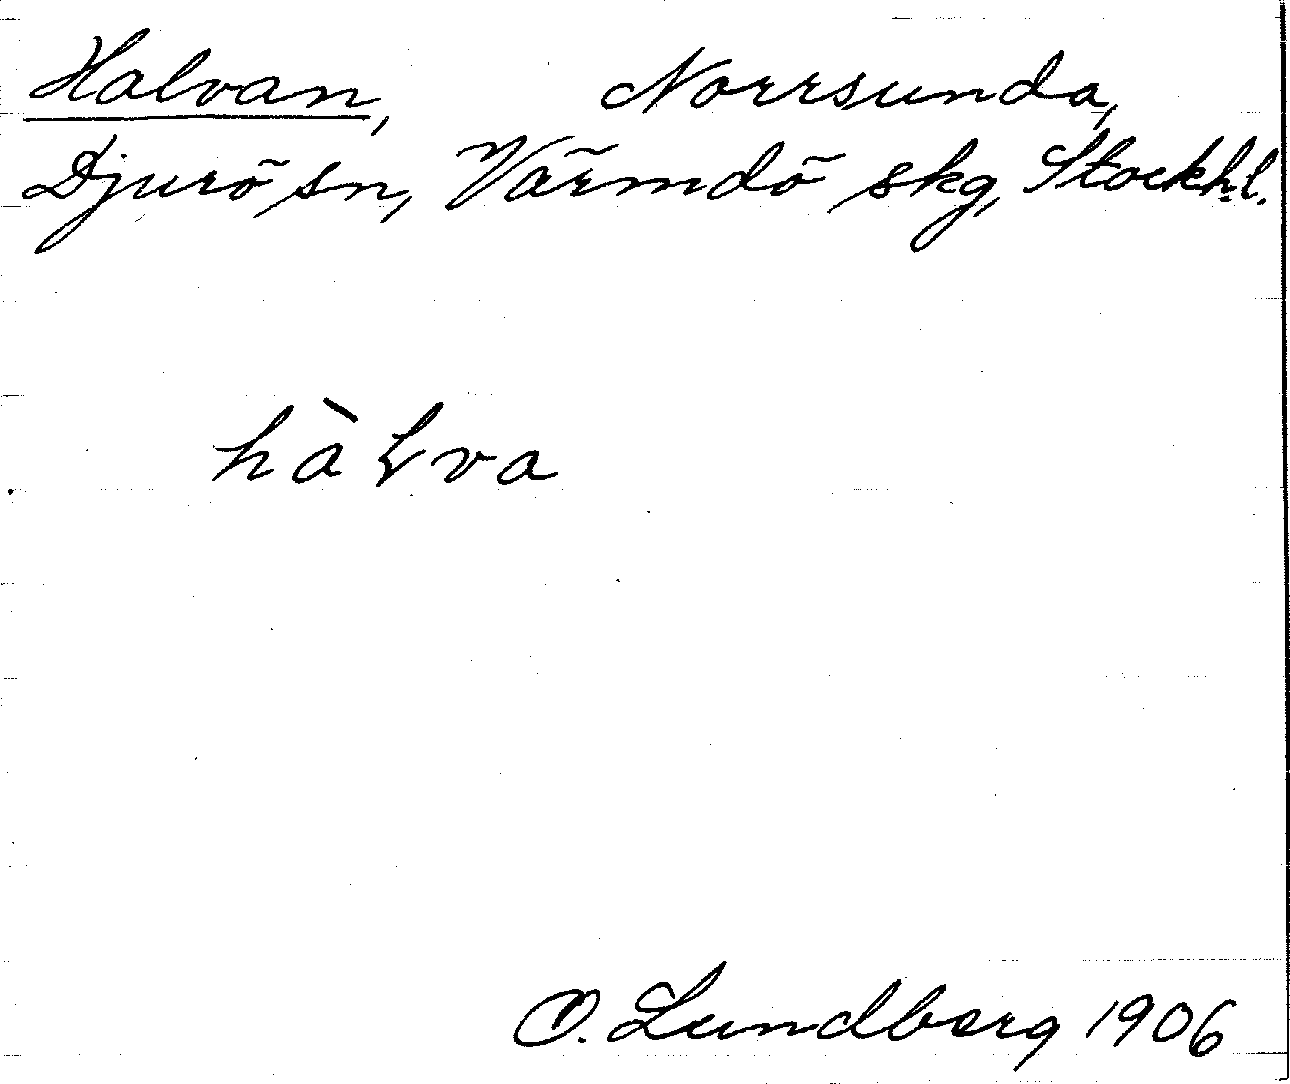 Halvan, Norrsunda,
Djurö sn, Värmdö skg, Stockh.l.
hàƚva
O. Lundberg 1906